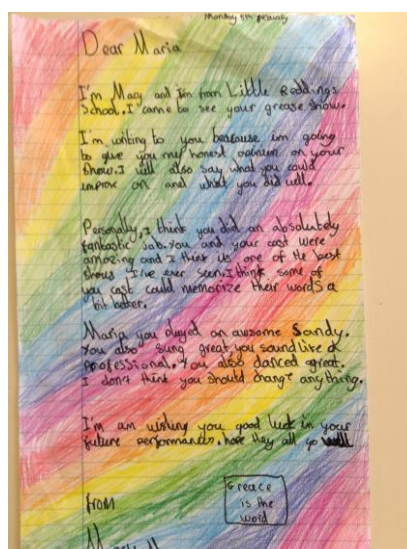 Monday 5th February
Dear Maria
I'm Macy and I'm from Little Reddings
School. I came to see your grease show.
I'm writing to you beacause im going
to give you my honest opinion on your
show. I will also say what you could
improve on and what you did well.
Personally, I think you did an absolutely
fantastic job. You and your cast were
amazing and I think its one of the best
shows I've ever seen. I think some of
you cast could memorize their words a
bit better.
Maria you played an awsome Sandy.
You also sung great you sound like a
professional. You also danced great.
I don't think you should change anything.
I'm am wishing you good luck in your
future performances. hope they all go well
from
Greace
is the
word